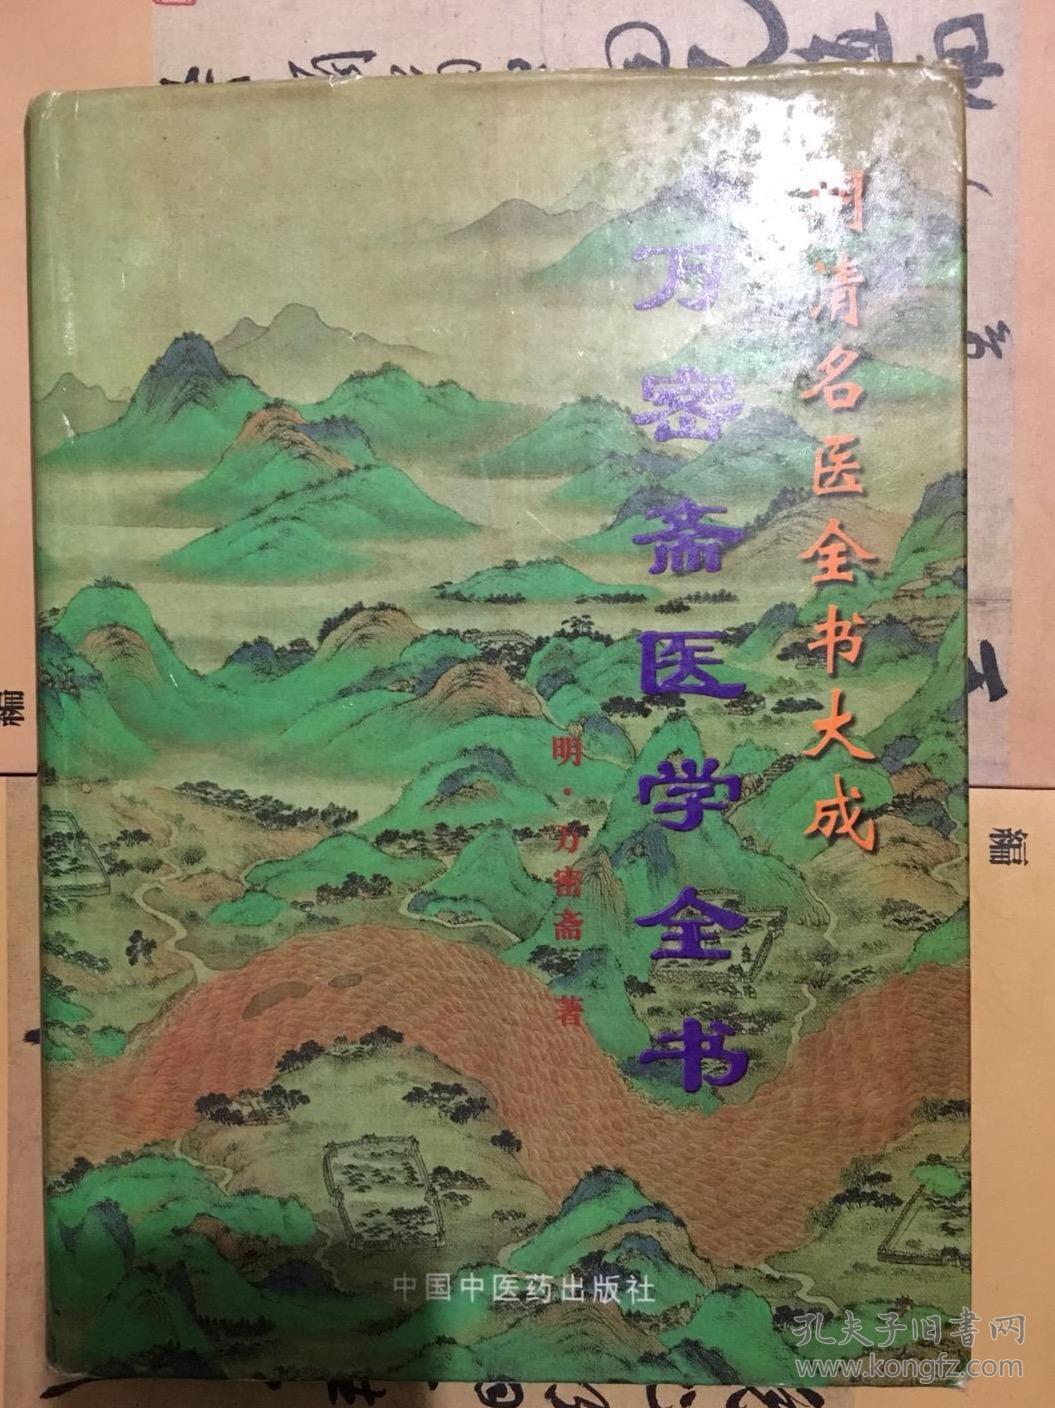 明清名医全书大成
万密斋医学全书
明·万密斋 著
中国中医药出版社
編
編
孔夫子旧書网
www.kongfz.com